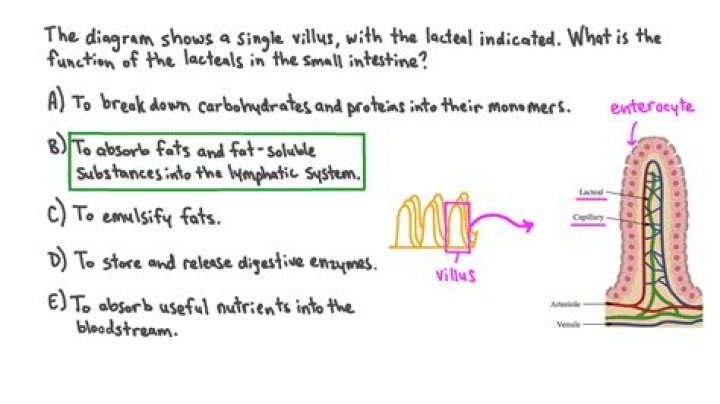 The diagram shows a single villus, with the lacteal indicated. What is the
function of the lacteals in the small intestine?
A) To break down carbohydrates and proteins into their monomers.
B) To absorb fats and fat-soluble
substances into the lymphatic system.
C) To emulsify fats.
D) To store and release digestive enzymes.
E) To absorb useful nutrients into the
bloodstream.
villus
enterocyte
Lacteal
Capillary
Arteriole
Venule